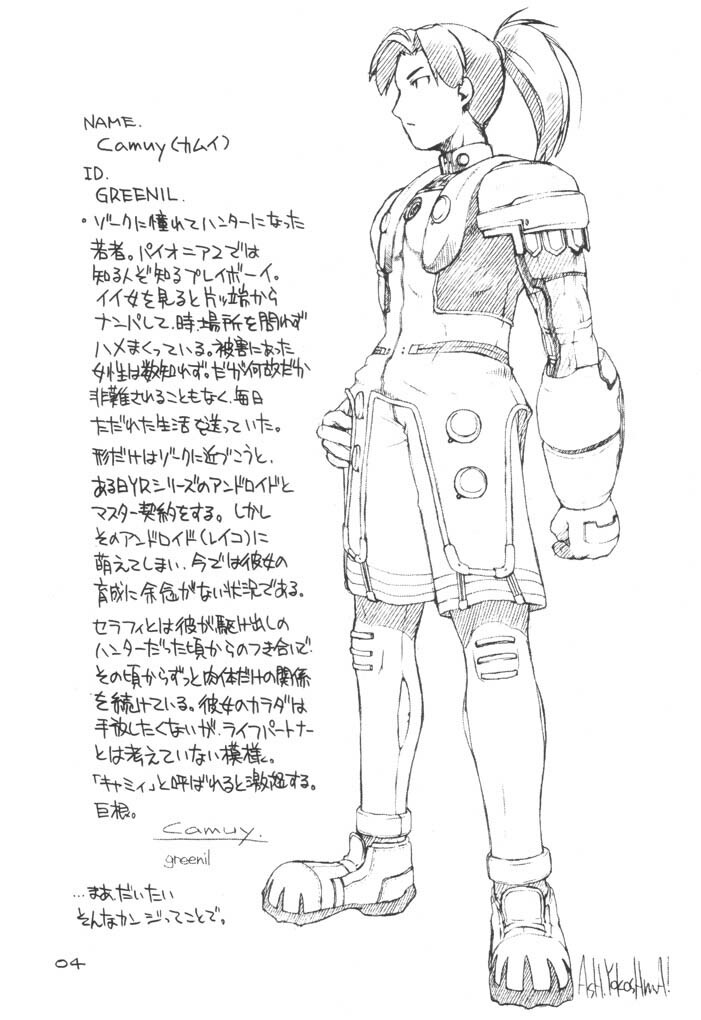 NAME.
Camuy(カムイ)
ID.
GREENIL.
・ゾークに憧れてハンターになった
若者。パイオニア2では
知る人ぞ知るプレイボーイ。
イイ女を見ると片ッ端から
ナンパして、時、場所を問わず
ハメまくっている。被害にあった
女性は数知れず。だが何故だか
非難されることもなく、毎日
ただれた生活を送っていた。
形だけはゾークに近づこうと、
ある日YRシリーズのアンドロイドと
マスター契約をする。しかし
そのアンドロイド(レイコ)に
萌えてしまい、今では彼女の
育成に余念がない状況である。
セラフィとは彼が駆け出しの
ハンターだった頃からのつき合いで、
その頃からずっと肉体だけの関係
を続けている。彼女のカラダは
手放したくないが、ライフパートナー
とは考えていない模様。
「キャミィ」と呼ばれると激怒する。
巨根。
Camuy.
greenil
…まあ、だいたい
そんなカンジってことで。
04
AsH.YokosHimA!